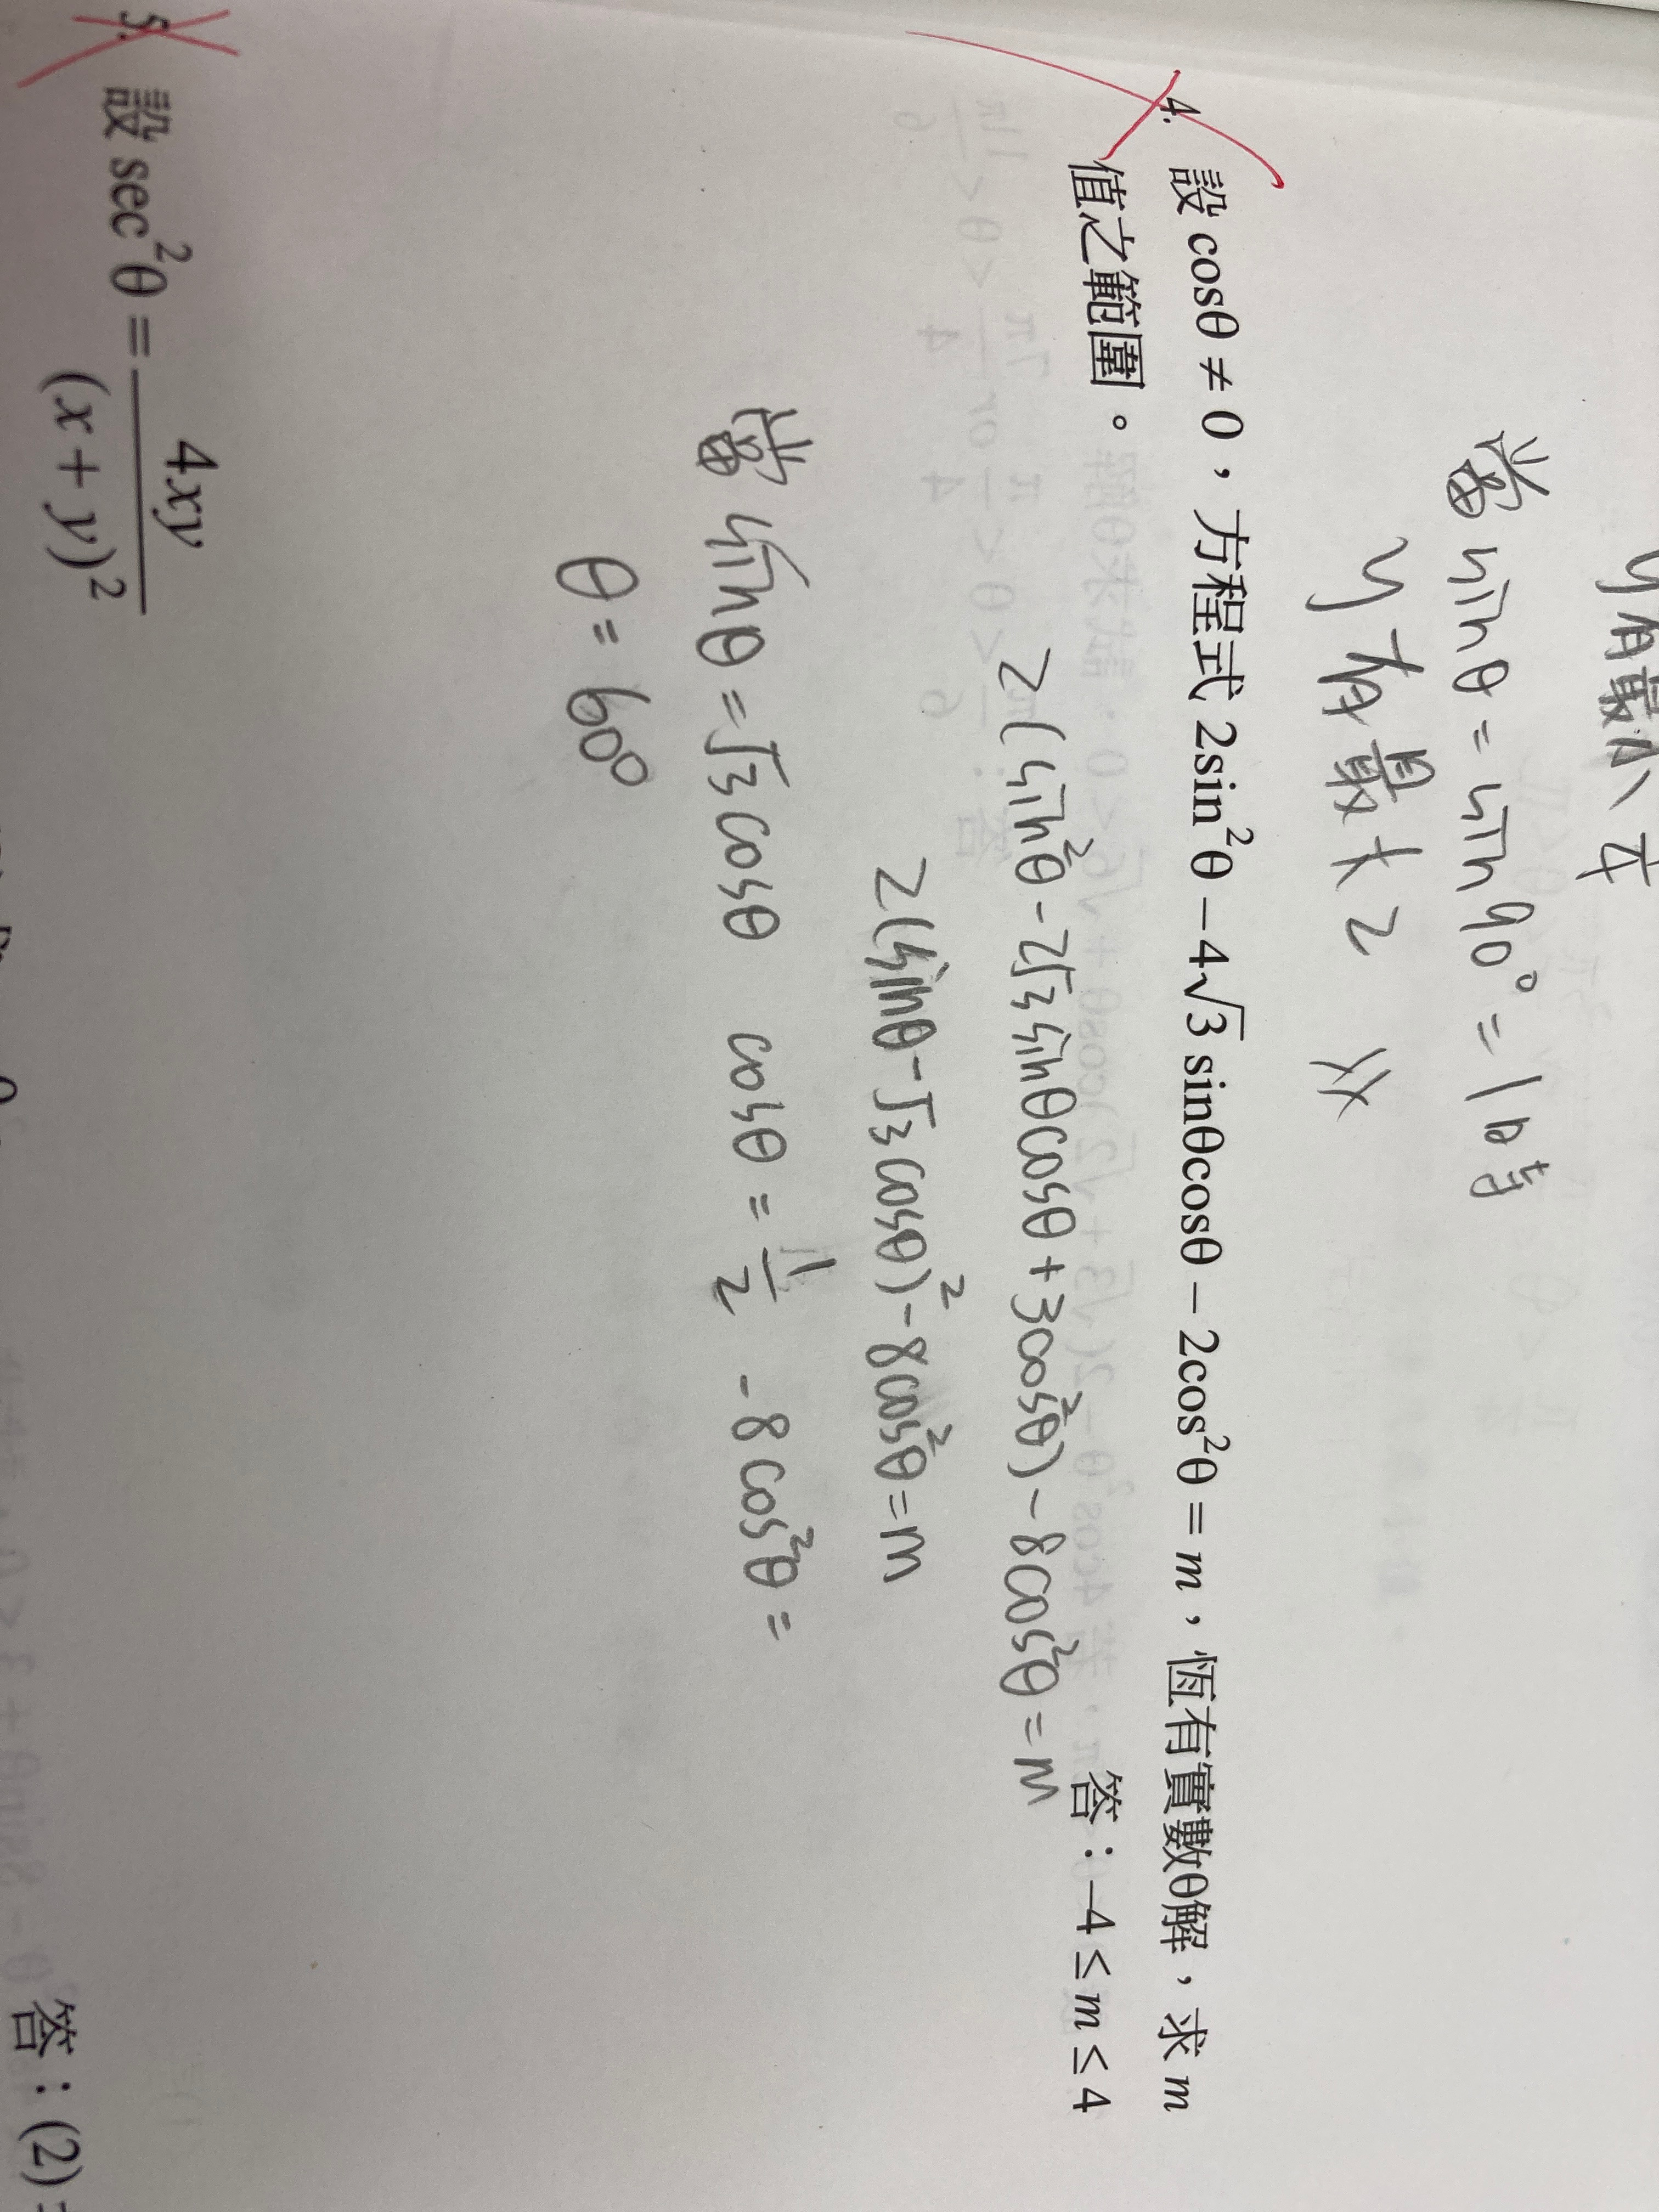 y有最小
當 sinθ = sin90° = 1 時
y 有最大 2
4. 設 cosθ ≠ 0，方程式 2sin²θ − 4√3 sinθcosθ − 2cos²θ = m，恆有實數θ解，求 m
值之範圍。
答：−4 ≤ m ≤ 4
2(sin²θ - 2√3 sinθcosθ + 3cos²θ) - 8cos²θ = m
2(sinθ - √3 cosθ)² - 8cos²θ = m
當 sinθ = √3 cosθ cosθ = 1/2 - 8cos²θ =
θ = 60°
5. 設 sec²θ = 4xy/(x + y)²
答：(2)